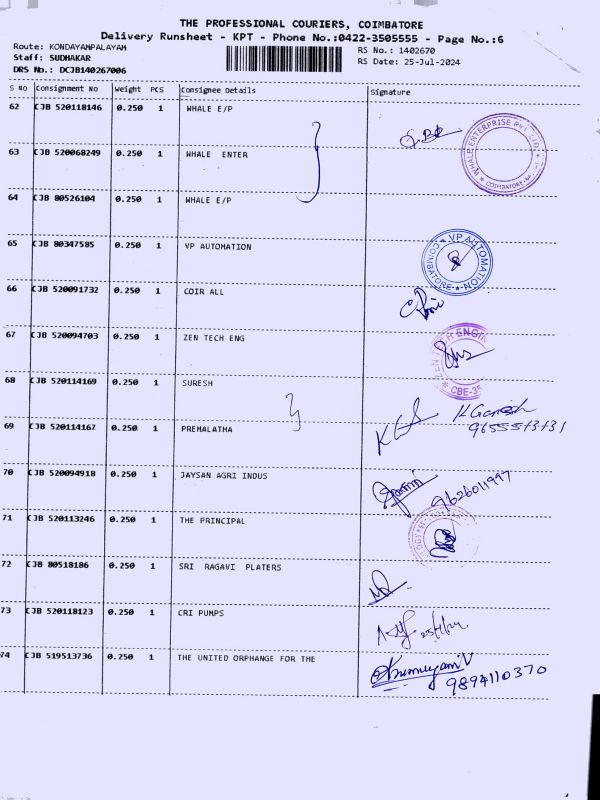 THE PROFESSIONAL COURIERS, COIMBATORE
Delivery Runsheet - KPT - Phone No.:0422-3505555 - Page No.:6
Route: KONDAYAMPALAYAM RS No.: 1402670
Staff: SUDHAKAR RS Date: 25-Jul-2024
DRS No.: DCJB140267006
S NO Consignment No Weight PCS Consignee Details Signature
62 CJB 520118146 0.250 1 WHALE E/P
WHALE ENTERPRISE PVT LTD COIMBATORE
63 CJB 520068249 0.250 1 WHALE ENTER
64 CJB 80526104 0.250 1 WHALE E/P
65 CJB 80347585 0.250 1 VP AUTOMATION
VP AUTOMATION COIMBATORE
66 CJB 520091732 0.250 1 COIR ALL
67 CJB 520094703 0.250 1 ZEN TECH ENG
ZEN TECH ENGI CBE-35
68 CJB 520114169 0.250 1 SURESH
K Ganesh
69 CJB 520114167 0.250 1 PREMALATHA
70 CJB 520094918 0.250 1 JAYSAN AGRI INDUS
9626011997
71 CJB 520113246 0.250 1 THE PRINCIPAL
72 CJB 80518186 0.250 1 SRI RAGAVI PLATERS
73 CJB 520118123 0.250 1 CRI PUMPS
74 CJB 519513736 0.250 1 THE UNITED ORPHANGE FOR THE
9894110370